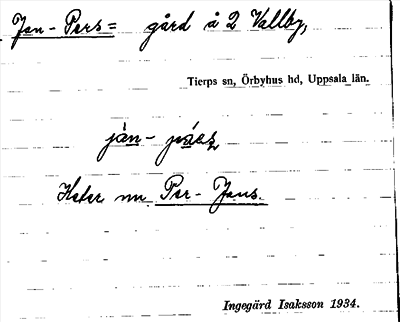 Jan-Pers= gård å 2 Vallby,
Tierps sn, Örbyhus hd, Uppsala län.
jàn-
Heter nu Per-Jans.
Ingegärd Isaksson 1934.